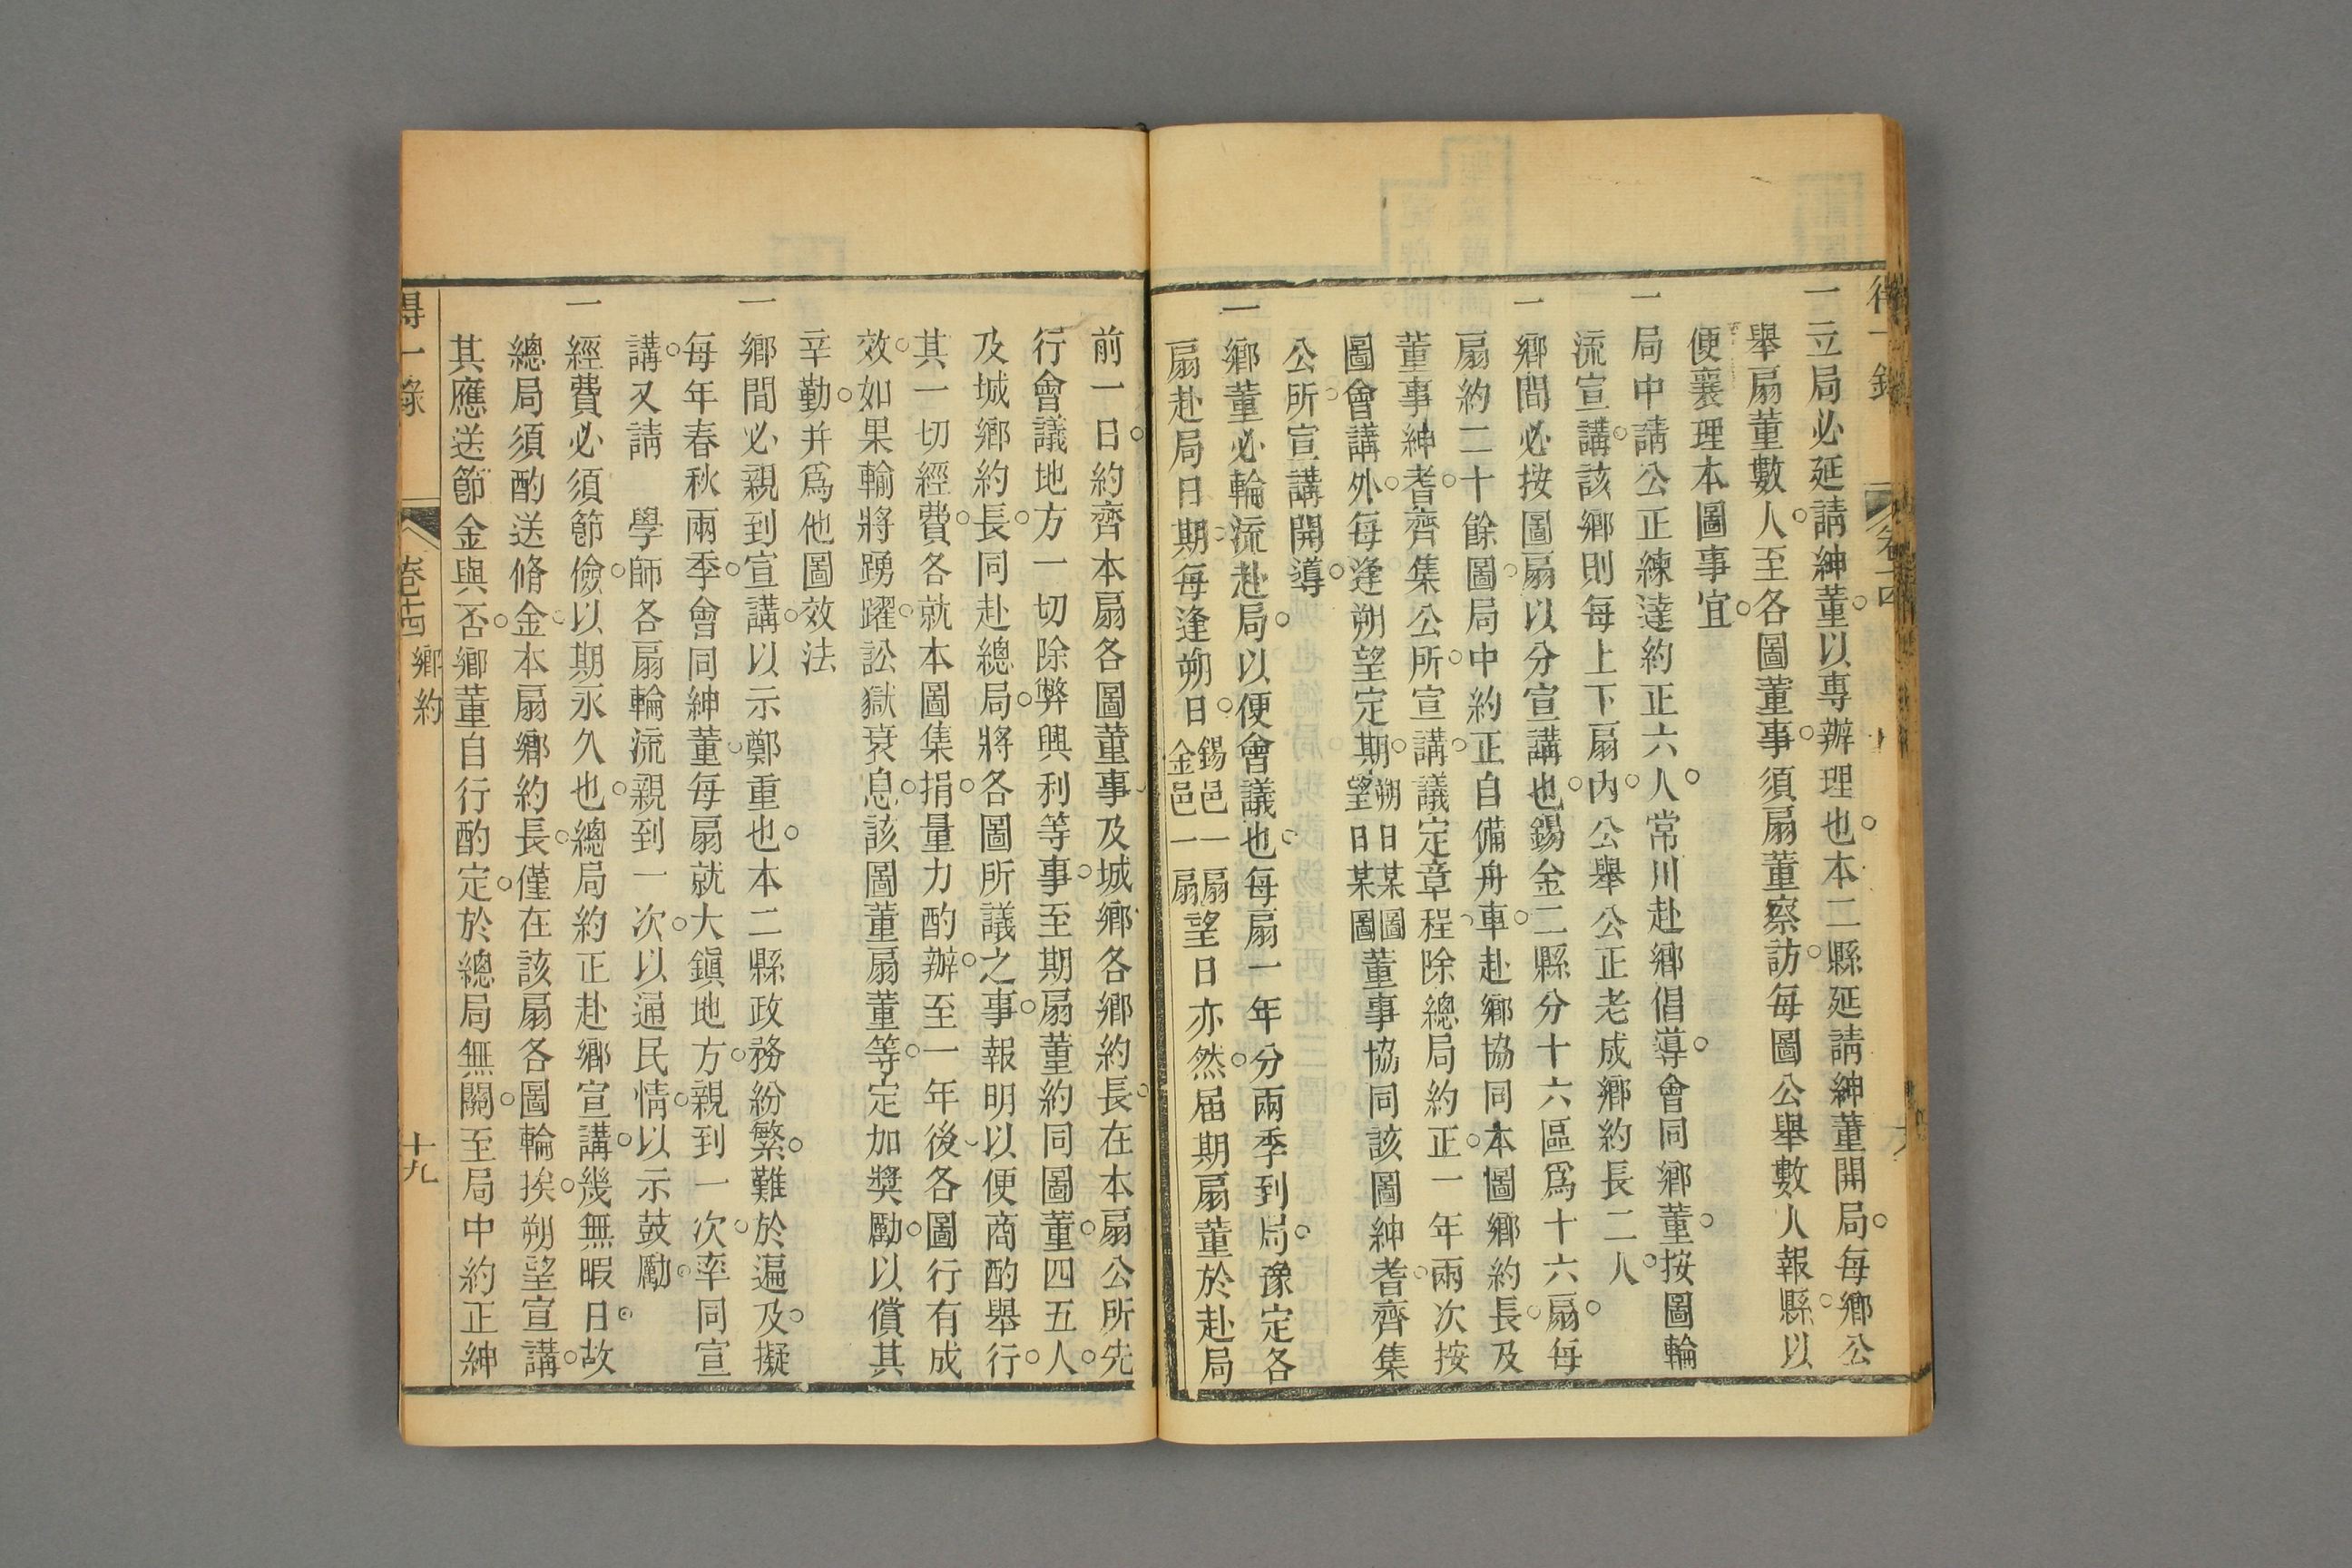 一立局必延請紳董。以專辦理也。本二縣延請紳董開局。每鄉公
舉扇董數人。至各圖董事。須扇董察訪。每圖公舉數人報縣。以
便襄理本圖事宜。
一局中請公正練達約正六人。常川赴鄉倡導。會同鄉董。按圖輪
流宣講。該鄉則每上下扇內。公舉公正老成鄉約長二人。
一鄉間必按圖扇以分宣講也。錫金二縣分十六區爲十六扇。每
扇約二十餘圖。局中約正自備舟車。赴鄉協同本圖鄉約長。及
董事紳耆。齊集公所。宣講。議定章程。除總局約正。一年兩次按
圖會講外。每逢朔望定期。朔日某圖望日某圖董事協同該圖紳耆。齊集
公所。宣講開導。
一鄉董必輪流赴局。以便會議也。每扇一年分兩季到局。豫定各
扇赴局日期。每逢朔日。錫邑一扇金邑一扇望日亦然。届期扇董於赴局
前一日。約齊本扇各圖董事及城鄉各鄉約長。在本扇公所。先
行會議地方一切除弊興利等事。至期扇董約同圖董。四五人。
及城鄉約長。同赴總局。將各圖所議之事。報明以便商酌舉行。
其一切經費。各就本圖集捐。量力酌辦。至一年後。各圖行有成
效。如果輸將踴躍。訟獄衰息。該圖董扇董等。定加獎勵。以償其
辛勤。并爲他圖效法
一鄉間必親到宣講。以示鄭重也。本二縣政務紛繁。難於遍及。擬
每年春秋兩季。會同紳董。每扇就大鎭地方。親到一次。率同宣
講。又請 學師各扇輪流親到一次。以通民情。以示鼓勵。
一經費必須節儉。以期永久也。總局約正赴鄉宣講。幾無暇日。故
總局須酌送脩金。本扇鄉約長。僅在該扇各圖輪挨。朔望宣講。
其應送節金與否。鄉董自行酌定。於總局無關。至局中約正紳
得一錄
卷十四 鄉約
十九